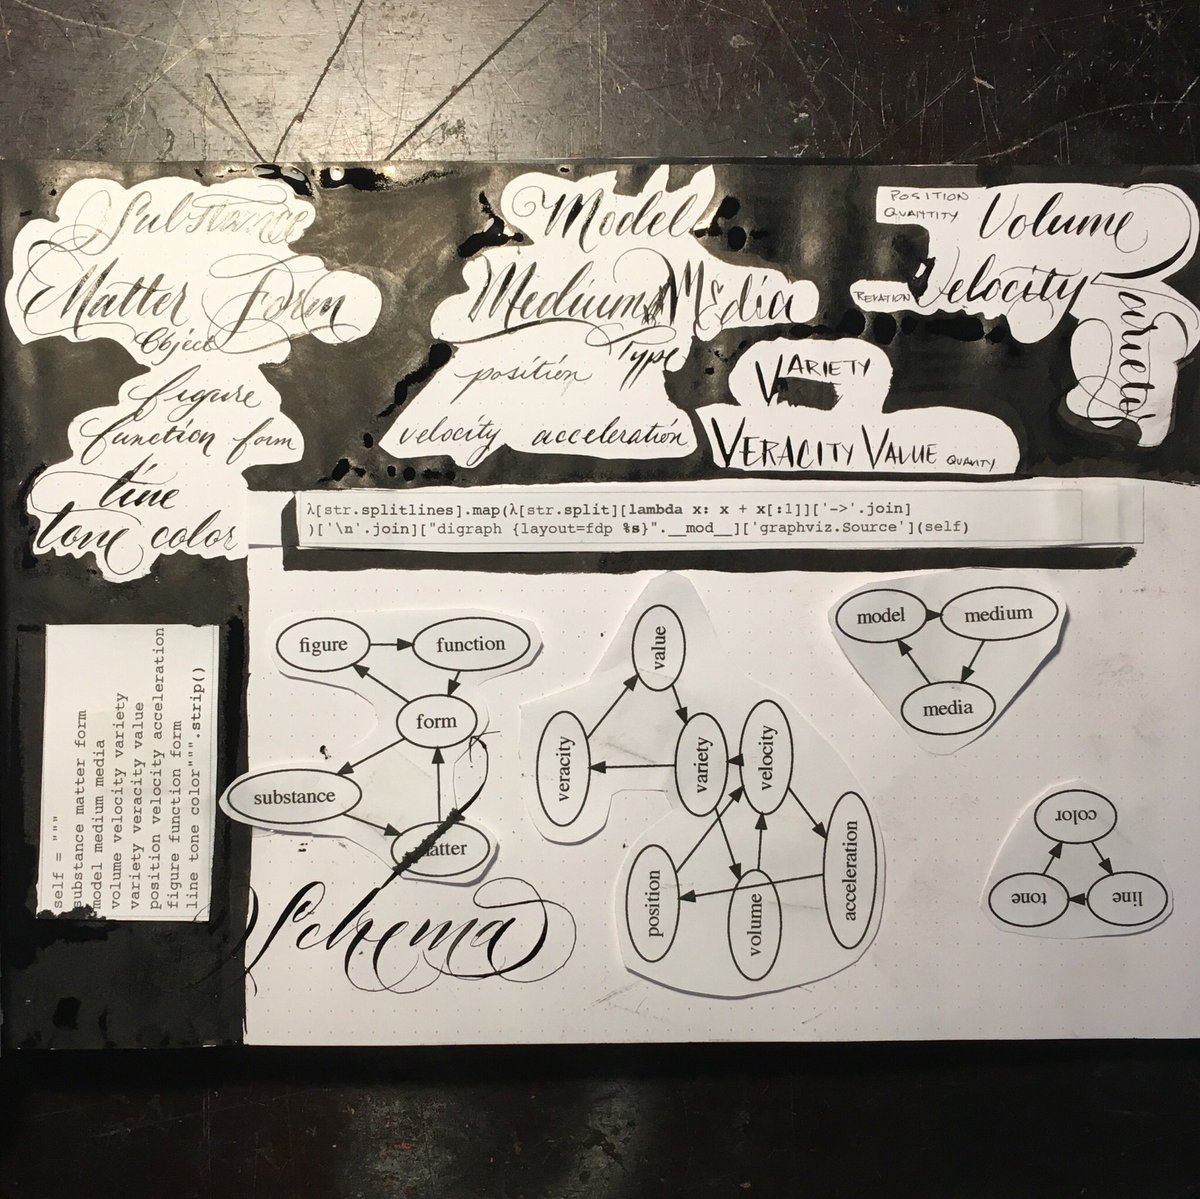 Substance
Matter Form
Object
figure
function form
line
tone color
Model
Medium Media
Type
position
velocity acceleration
POSITION
QUANTITY
Volume
RELATION
Velocity
Variety
VARIETY
VERACITY VALUE QUALITY
λ[str.splitlines].map(λ[str.split][lambda x: x + x[:1]]['->'.join]
)['\n'.join]["digraph {layout=fdp %s}".__mod__]['graphviz.Source'](self)
self = """
substance matter form
model medium media
volume velocity variety
variety veracity value
position velocity acceleration
figure function form
line tone color""".strip()
figure
function
form
substance
matter
value
veracity
variety
velocity
position
volume
acceleration
model
medium
media
color
tone
line
Schema